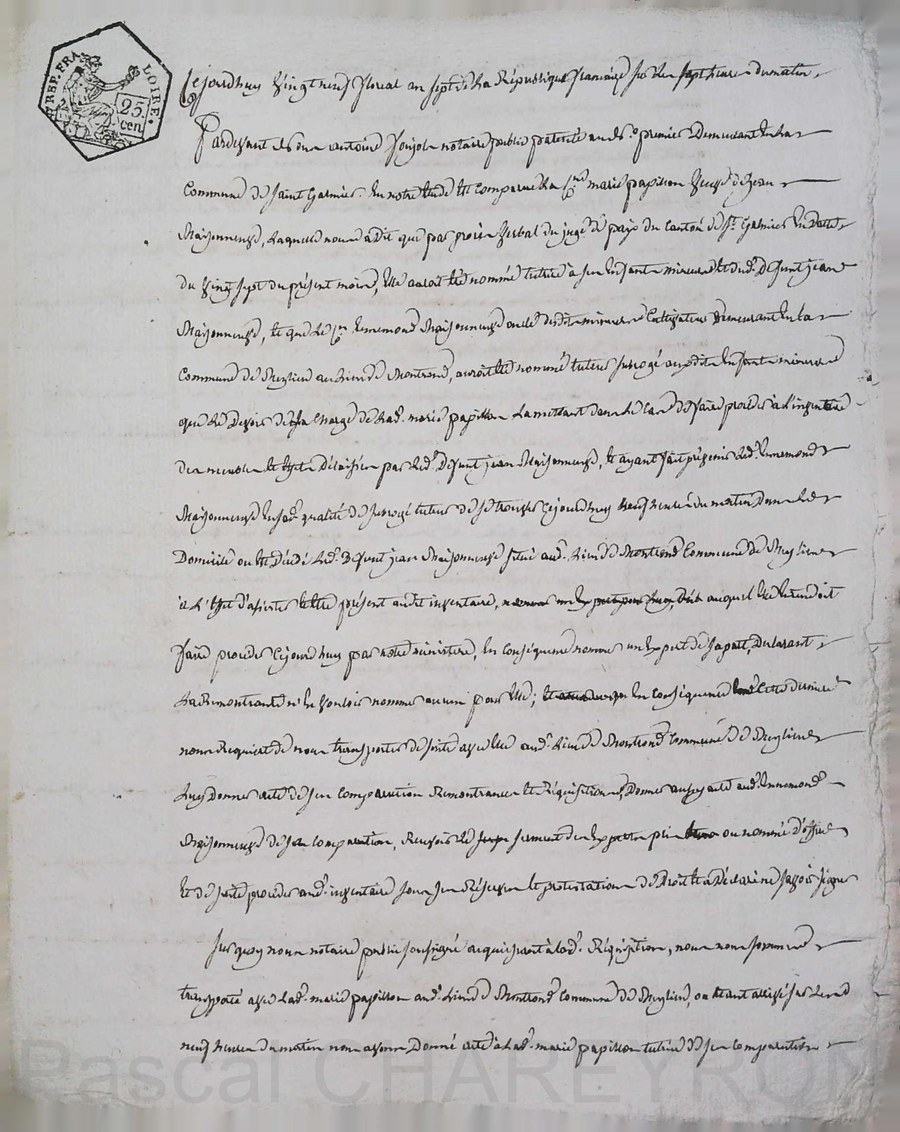 REP. FRA. LOIRE.
25
cen
Cejourdhuy Vingt neuf floreal an sept de la Republique francaise sur les sept heures du matin
Pardevant nous antoine notaire public patenté premier demeurant en la
Commune de Saint Galmier En notre Etude Est Comparue La Cne marie papillon Veuve de Jean
Maisonneuve, Laquelle nous a dit que par procès Verbal du juge de paix du canton de St Galmier En datte
du Vingt sept du présent mois, Elle auroit Eté nommée tutrice à ses Enfants mineurs et dud. Defunt jean
Maisonneuve, et que Le Cen Ennemond Maisonneuve oncle desdits mineurs Cultivateur Demeurant En la
Commune de Meylieu au Lieu de Montrond, auroit Eté nommé tuteur subrogé auxdits Enfants mineurs
que Le Devoir de la Charge de Lad. marie papillon La mettant dans Le Cas de faire proceder à L'inventaire
des meubles et Effets Délaissés par Led. Defunt jean Maisonneuve, Et ayant fait prévenir Led. Ennemond
Maisonneuve En sad. qualité de subrogé tuteur de se trouver Cejourdhuy neuf heures du matin Dans Le
Domicile ou Est Décédé Led. Defunt jean Maisonneuve situé aud. Lieu de Montrond Commune de Meylieu
à L'Effet d'assister et Etre présent audit inventaire, auquel Elle Entendoit
faire proceder Cejourdhuy par notre ministere, En conséquence nommer un Expert de sa part, Declarant
La Remontrante n'En Vouloir nommer aucun pour Elle; En Conséquence Cette derniere
nous Requiert de nous transporter de suite avec Elle aud. Lieu de Montrond Commune de Meylieu
Luy Donner acte de ses Comparution Remontrances et Réquisitions, Donner aussy acte aud. Ennemond
Maisonneuve de sa Comparution, Recevoir Le serment des Experts pris ou nommé d'office
Et de suite proceder aud. inventaire sous ses Réserves et protestations de Droit Et a Déclaré ne savoir signer
Sur quoy nous notaire public soussigné acquiesçant à lad. Réquisition, nous nous sommes
transporté avec Lad. marie papillon aud. Lieu de Montrond Commune de Meylieu, ou Etant arrivé sur Les
neuf heures du matin nous avons Donné acte à Lad. marie papillon tutrice de ses Comparution
Pascal CHAREYRON